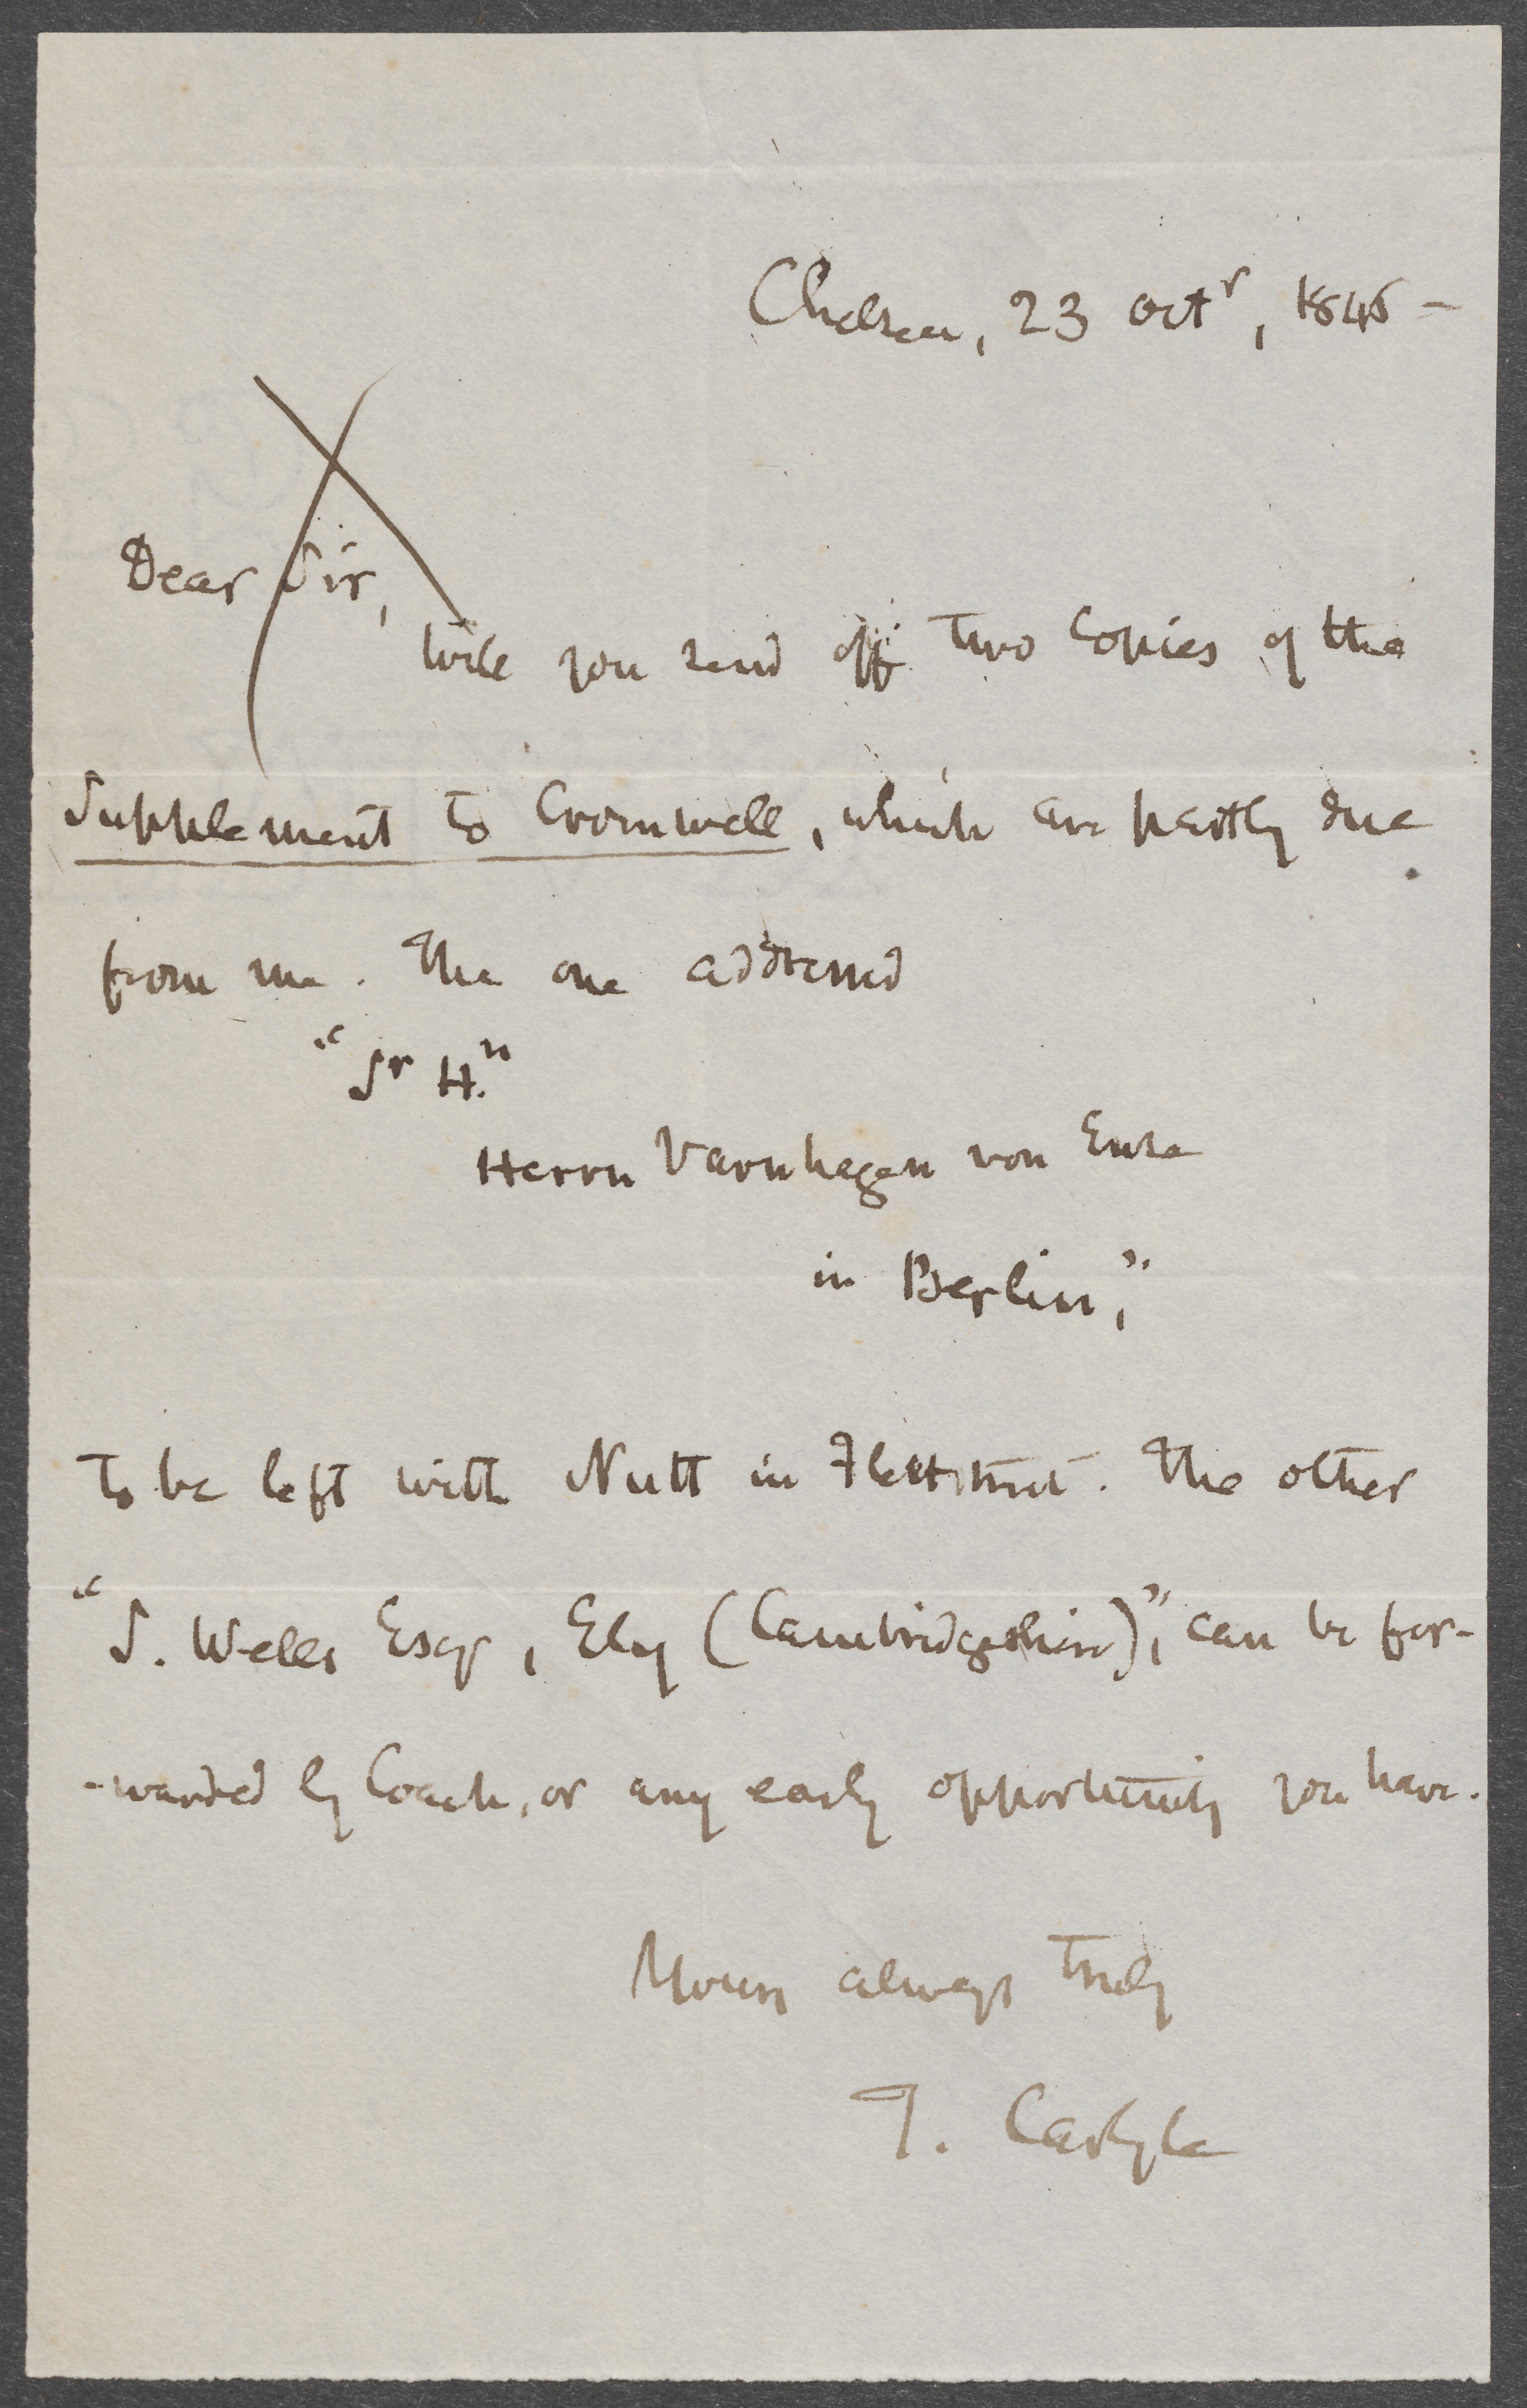 Chelsea, 23 Octr, 1846 –
Dear Sir,
Will you send off two Copies of the
Supplement to Cromwell, which are partly due
from me. The one addressed
"Sr H."
Herrn Varnhagen von Ense
in Berlin,"
to be left with Nutt in Fleetstreet. The other
"S. Wells Esqr, Ely (Cambridgeshire)," can be for-
-warded by Coach, or any early opportunity you have.
Yours always truly
T. Carlyle